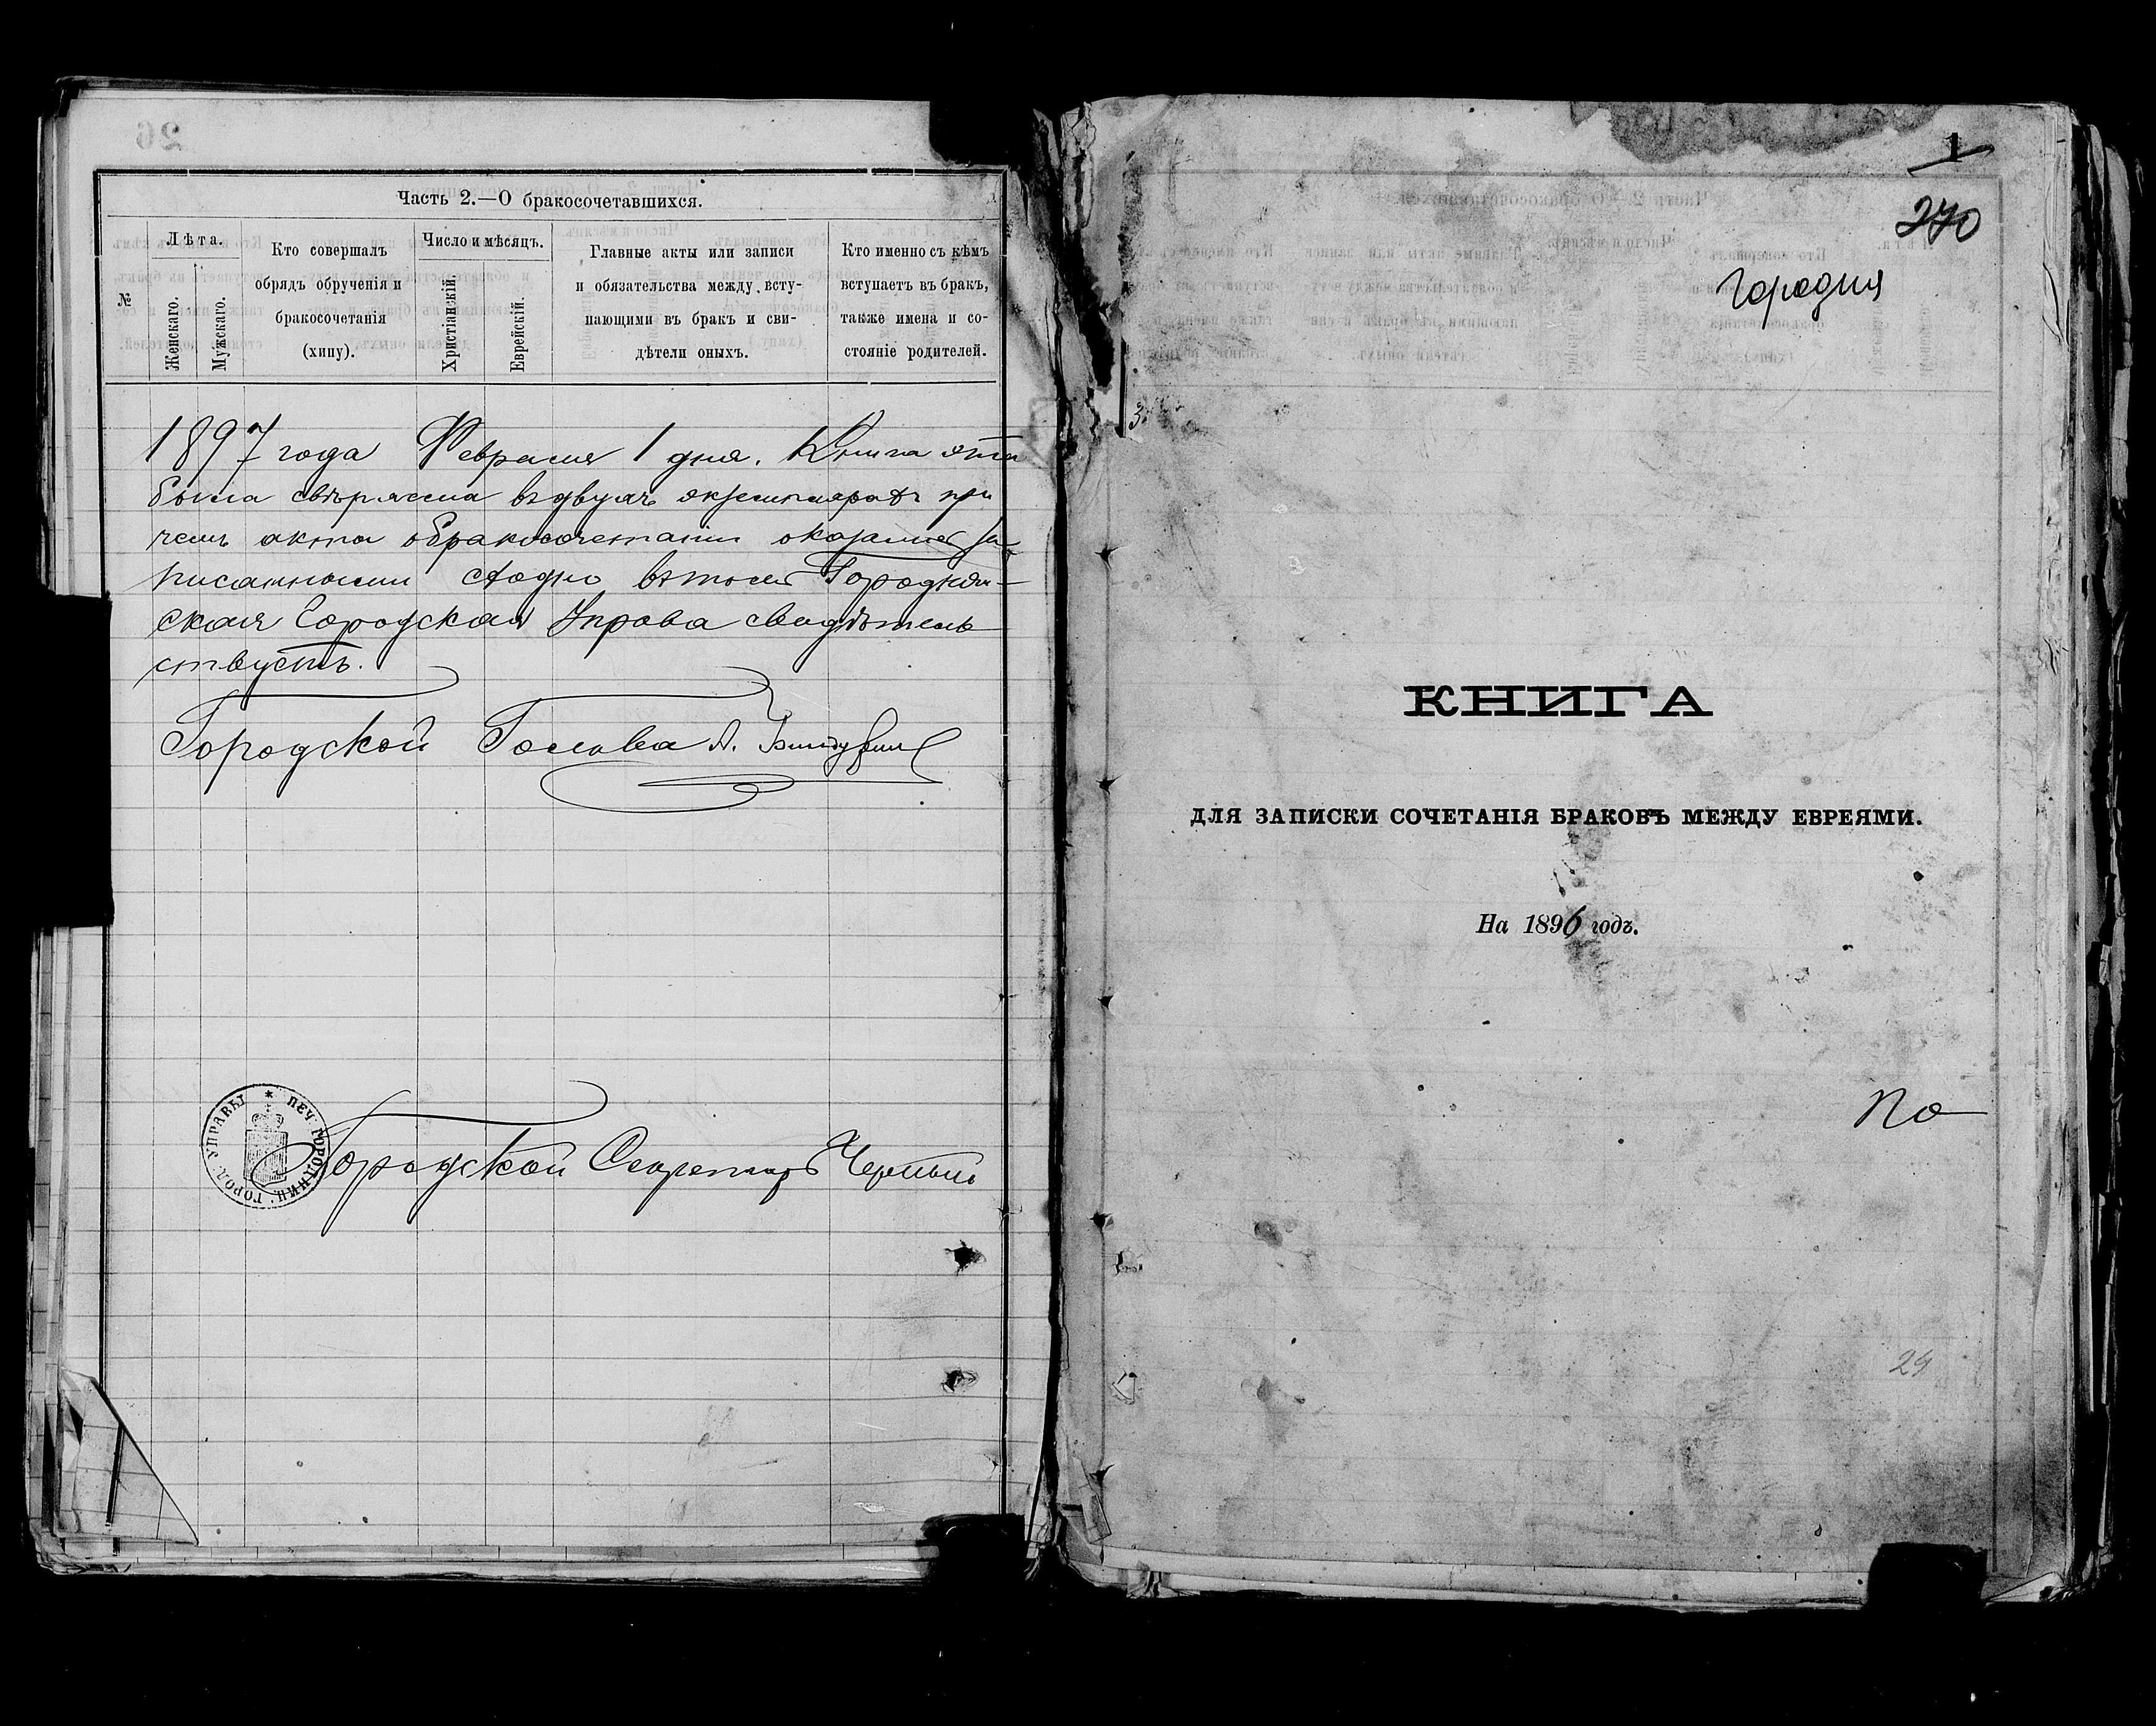 Часть 2.—О бракосочетавшихся.
№
Лѣта.
Женскаго.
Мужскаго.
Кто совершалъ
обрядъ обрученія и
бракосочетанія
(хипу).
Число и мѣсяцъ.
Христіанскій.
Еврейскій.
Главные акты или записи
и обязательства между всту-
пающими въ бракъ и сви-
дѣтели оныхъ.
Кто именно съ кѣмъ
вступаетъ въ бракъ,
также имена и со-
стояніе родителей.
1897 года Февраля 1 дня. Книга эта
была свѣряема въ двухъ экземплярахъ при
чемъ акты о бракосочетаніи оказались за
писанными сходно въ томъ Городнян-
ская Городская Управа свидѣтель
ствуетъ.
Городской Голова А.
Городской Секретарь
ПЕЧ. ГОРОДНИЦ. ГОРОД. УПРАВЫ
1
270
Городня
3.
КНИГА
ДЛЯ ЗАПИСКИ СОЧЕТАНІЯ БРАКОВЪ МЕЖДУ ЕВРЕЯМИ.
На 1896 годъ.
По
29